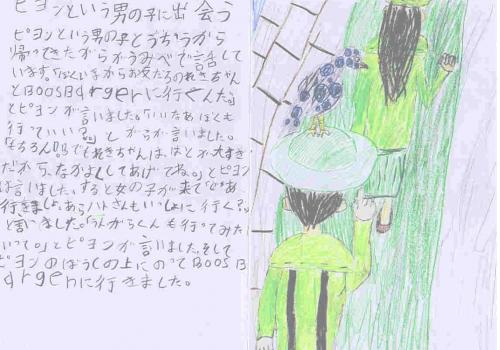 ピヨンという男の子に出会う
ピヨンという男の子とうちゅうから
帰ってきたがらがうみべで話して
います。「ぼくいまからお友だちのれきちゃん
とBOOSBargerに行くんだ。」
とピヨンが言いました。「いいなあぼくも
行っていい?。」とがらが言いました。
「もちろん!!。でもれきちゃんは、はとが大すき
だから、なかよくしてあげてね。」とピヨン
は言いました。すると女の子が来て「じゃあ
行きましょ、あらハトさんもいっしょに行く?」
と言いました。「うん がらくんも行ってみた
いって。」とピヨンが言いました。そして
ピヨンのぼうしの上にのってBOOSB
argerに行きました。